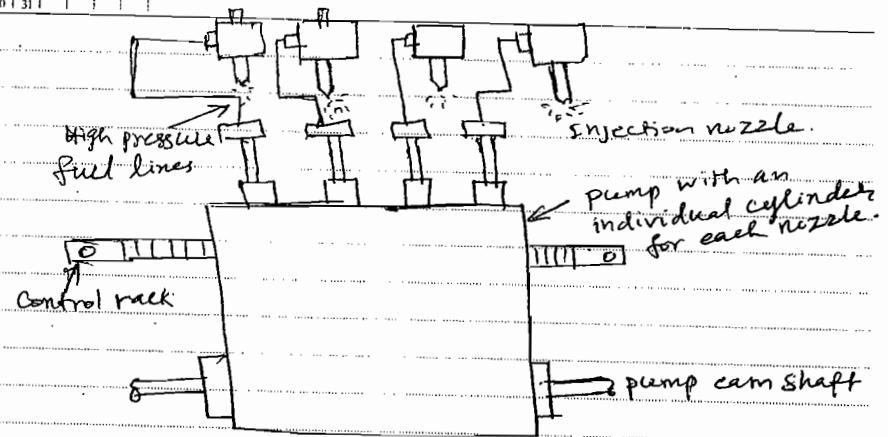 31
High pressure
fuel lines
Injection nozzle.
pump with an
individual cylinder
for each nozzle.
Control rack
pump cam shaft